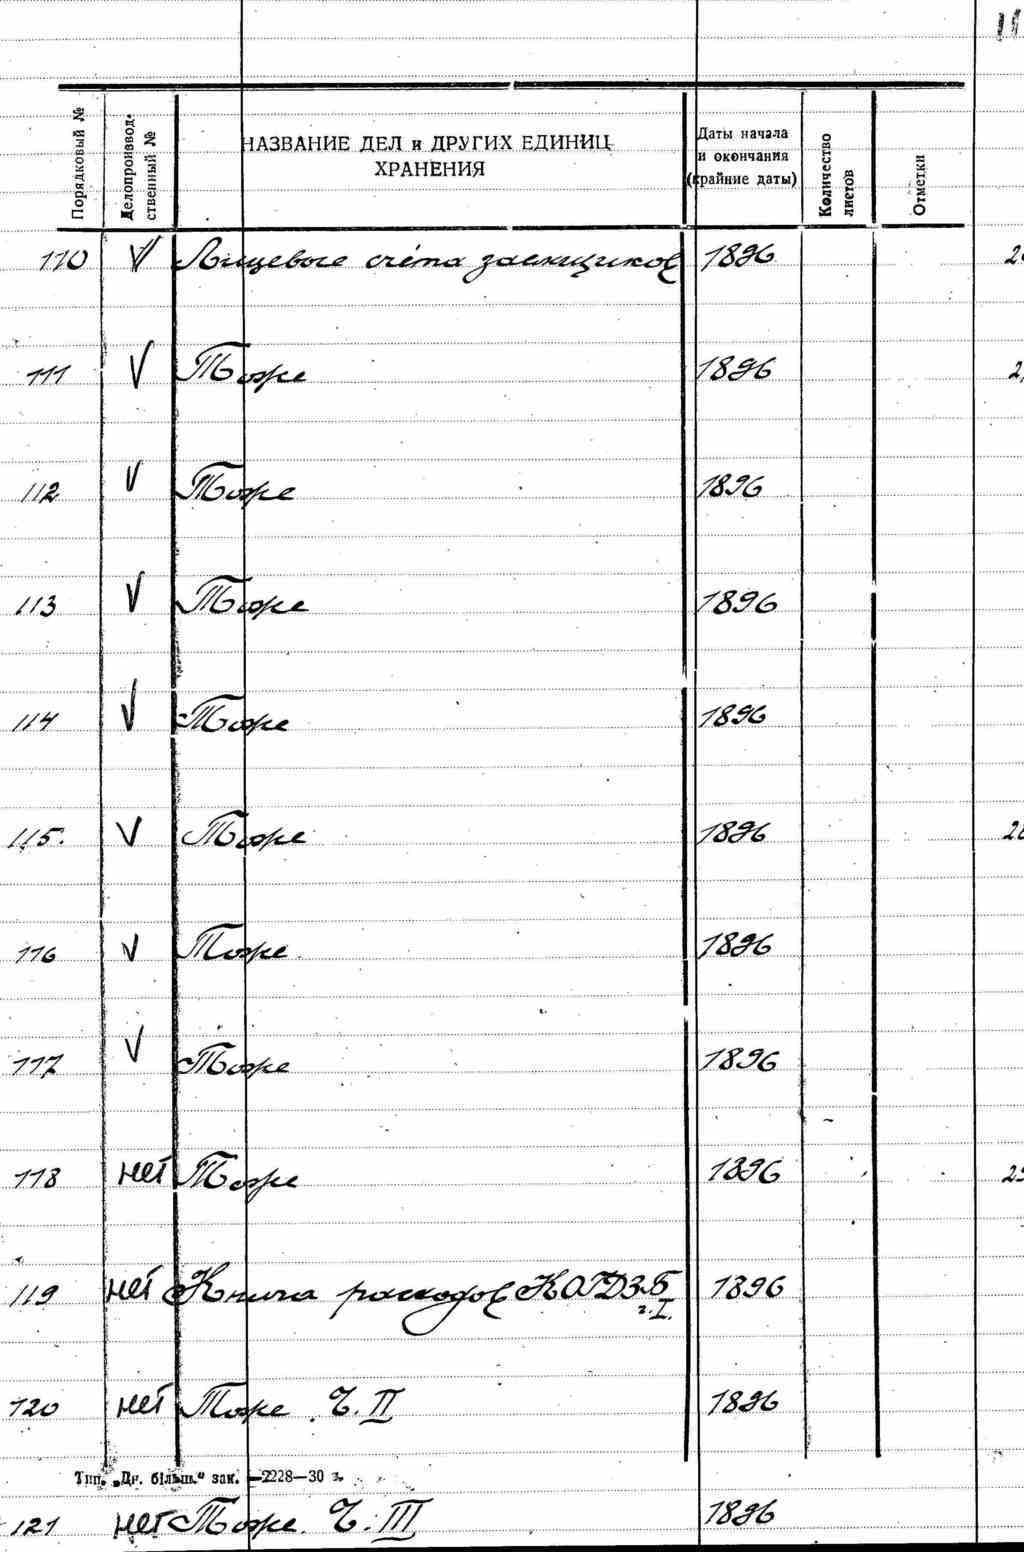 11
Порядковый №
Делопроизвод-
ственный №
НАЗВАНИЕ ДЕЛ и ДРУГИХ ЕДИНИЦ
ХРАНЕНИЯ
Даты начала
и окончания
(крайние даты)
Количество
листов
Отметки
110 V Лицевые счёта заемщиков 1896
111 V Тоже 1896
112 V Тоже 1896
113 V Тоже 1896
114 V Тоже 1896
115. V Тоже 1896
116 V Тоже 1896
117 V Тоже 1896
118 нет Тоже 1896
119 нет Книга расходов КОГДЗ.Б 1896
ч.I.
120 нет Тоже Ч.II 1896
Тип. „Дн. більш." зак. —2228—30 з.
121 нет Тоже Ч.III 1896